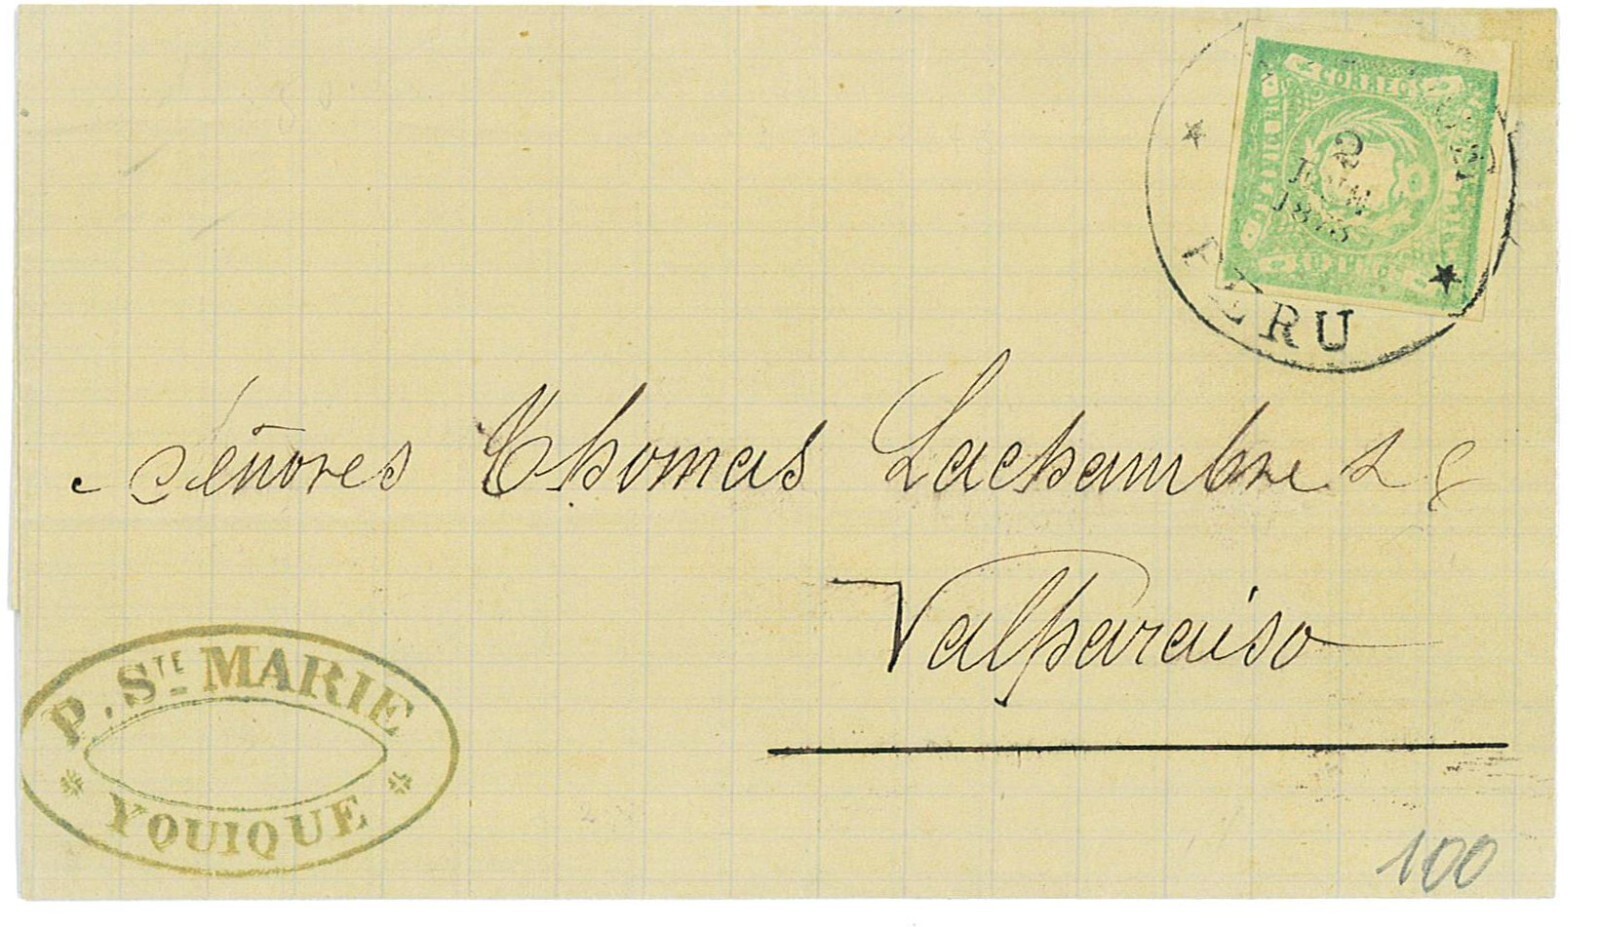 CORREOS
2
PERU
Señores Thomas Lachambre &
Valparaiso
P. STE MARIE
YQUIQUE
100